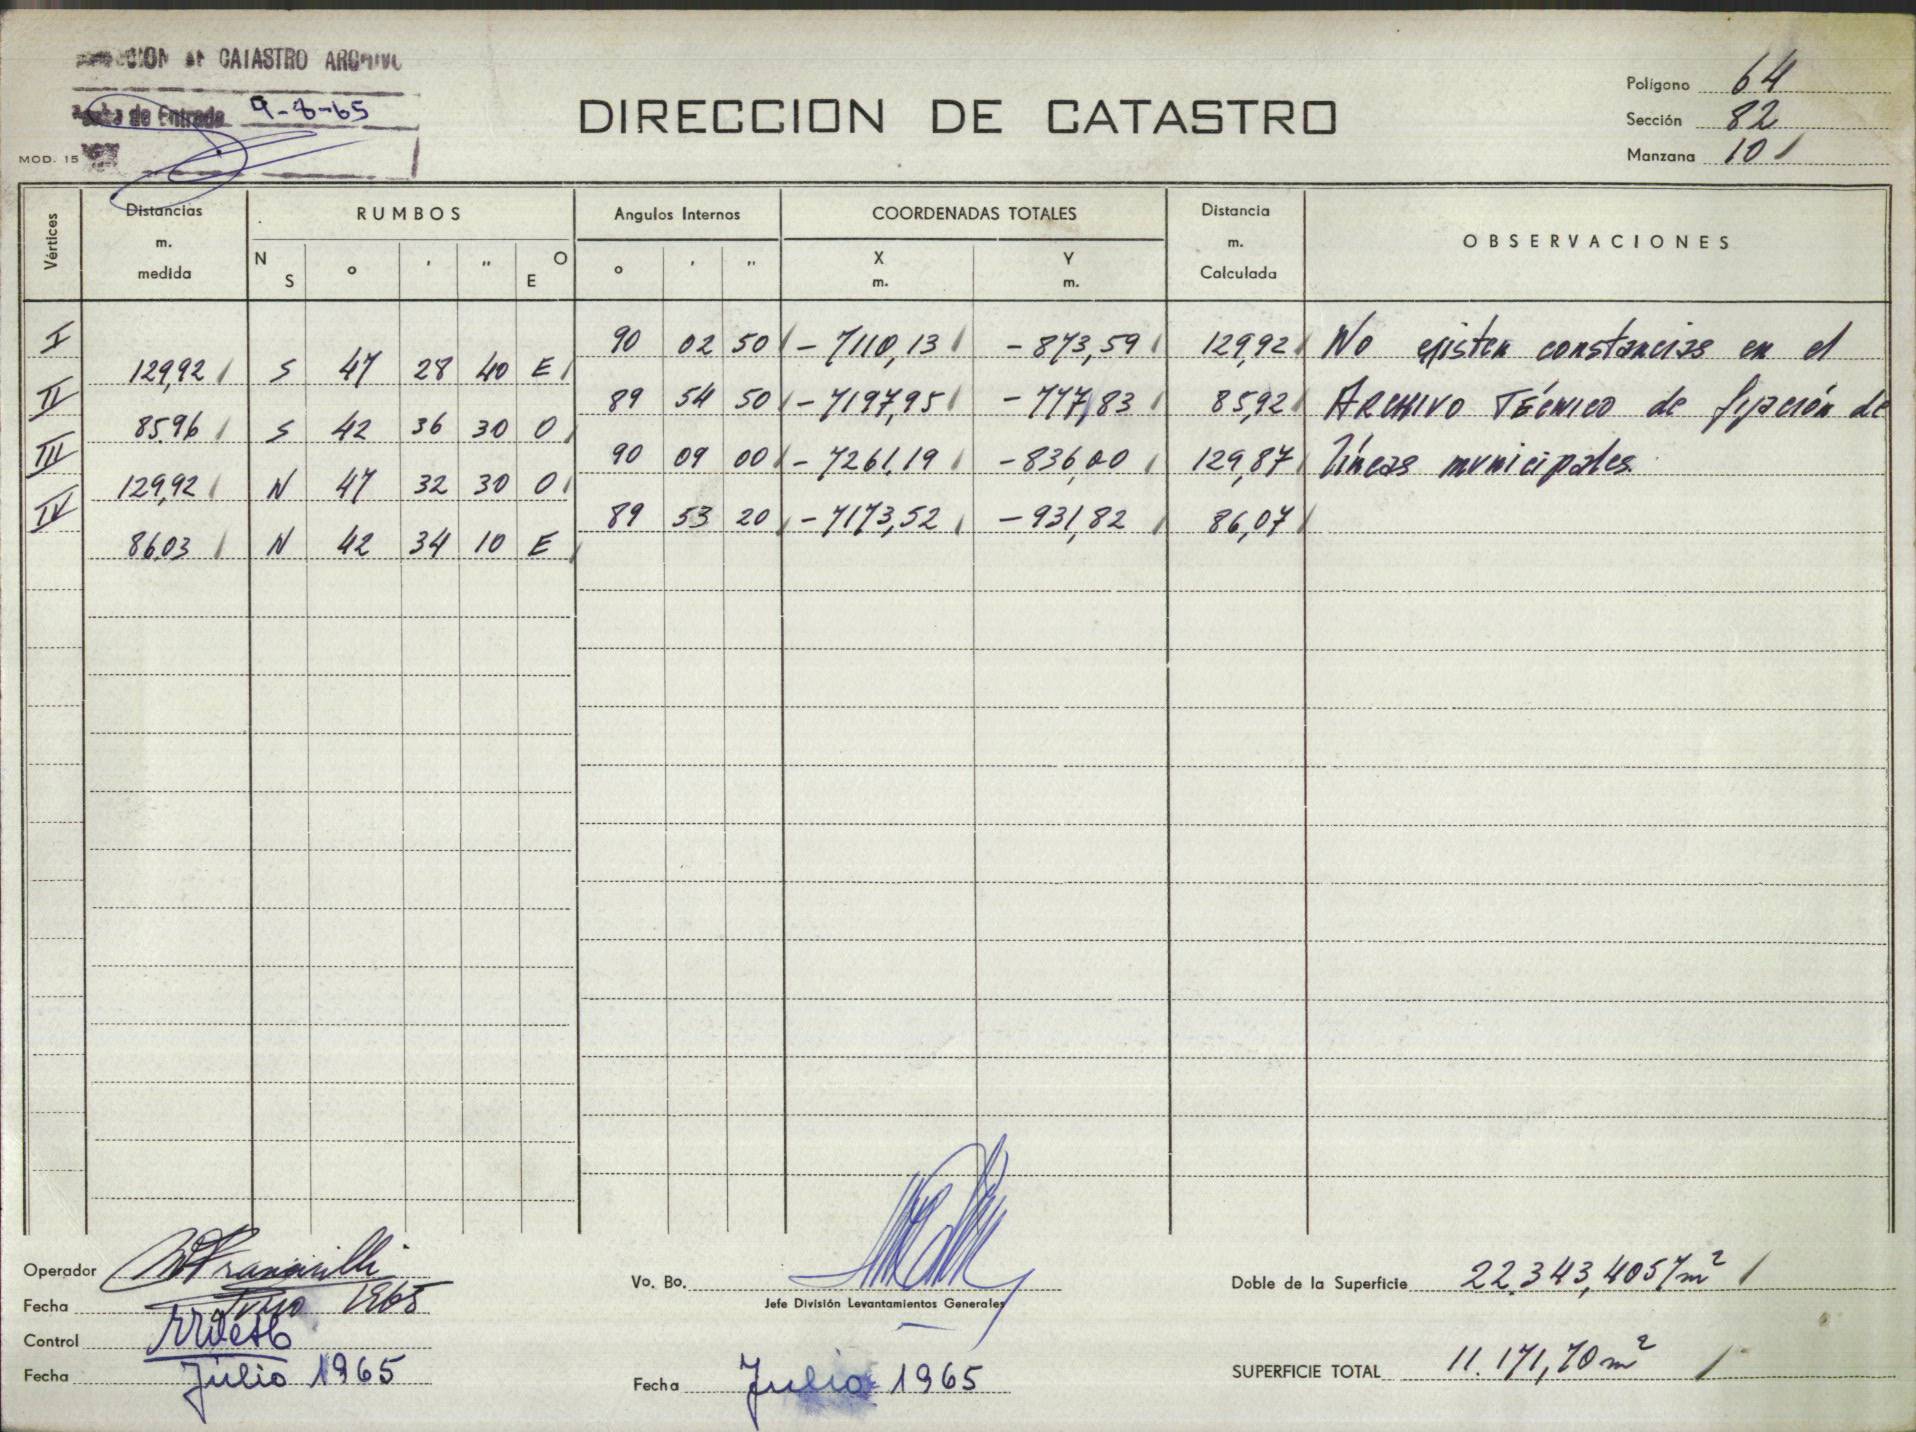 CATASTRO ARCHIVO
de Entrada 9-8-65
MOD. 15
DIRECCION DE CATASTRO
Polígono 64
Sección 82
Manzana 10
Vértices
Distancias m. medida
RUMBOS
N S ° ' " O E
Angulos Internos
° ' "
COORDENADAS TOTALES
X m. Y m.
Distancia m. Calculada
OBSERVACIONES
I 90 02 50 -7110,13 -873,59 129,92 No existen constancias en el
129,92 S 47 28 40 E
II 89 54 50 -7197,95 -777,83 85,92 ARCHIVO TÉCNICO de fijación de
85,96 S 42 36 30 O
III 90 09 00 -7261,19 -836,00 129,87 líneas municipales.
129,92 N 47 32 30 O
IV 89 53 20 -7173,52 -931,82 86,07
86,03 N 42 34 10 E
Operador
Fecha 1965
Control
Fecha Julio 1965
Vo. Bo.
Jefe División Levantamientos Generales
Fecha Julio 1965
Doble de la Superficie 22.343,4057 m²
SUPERFICIE TOTAL 11.171,70 m²